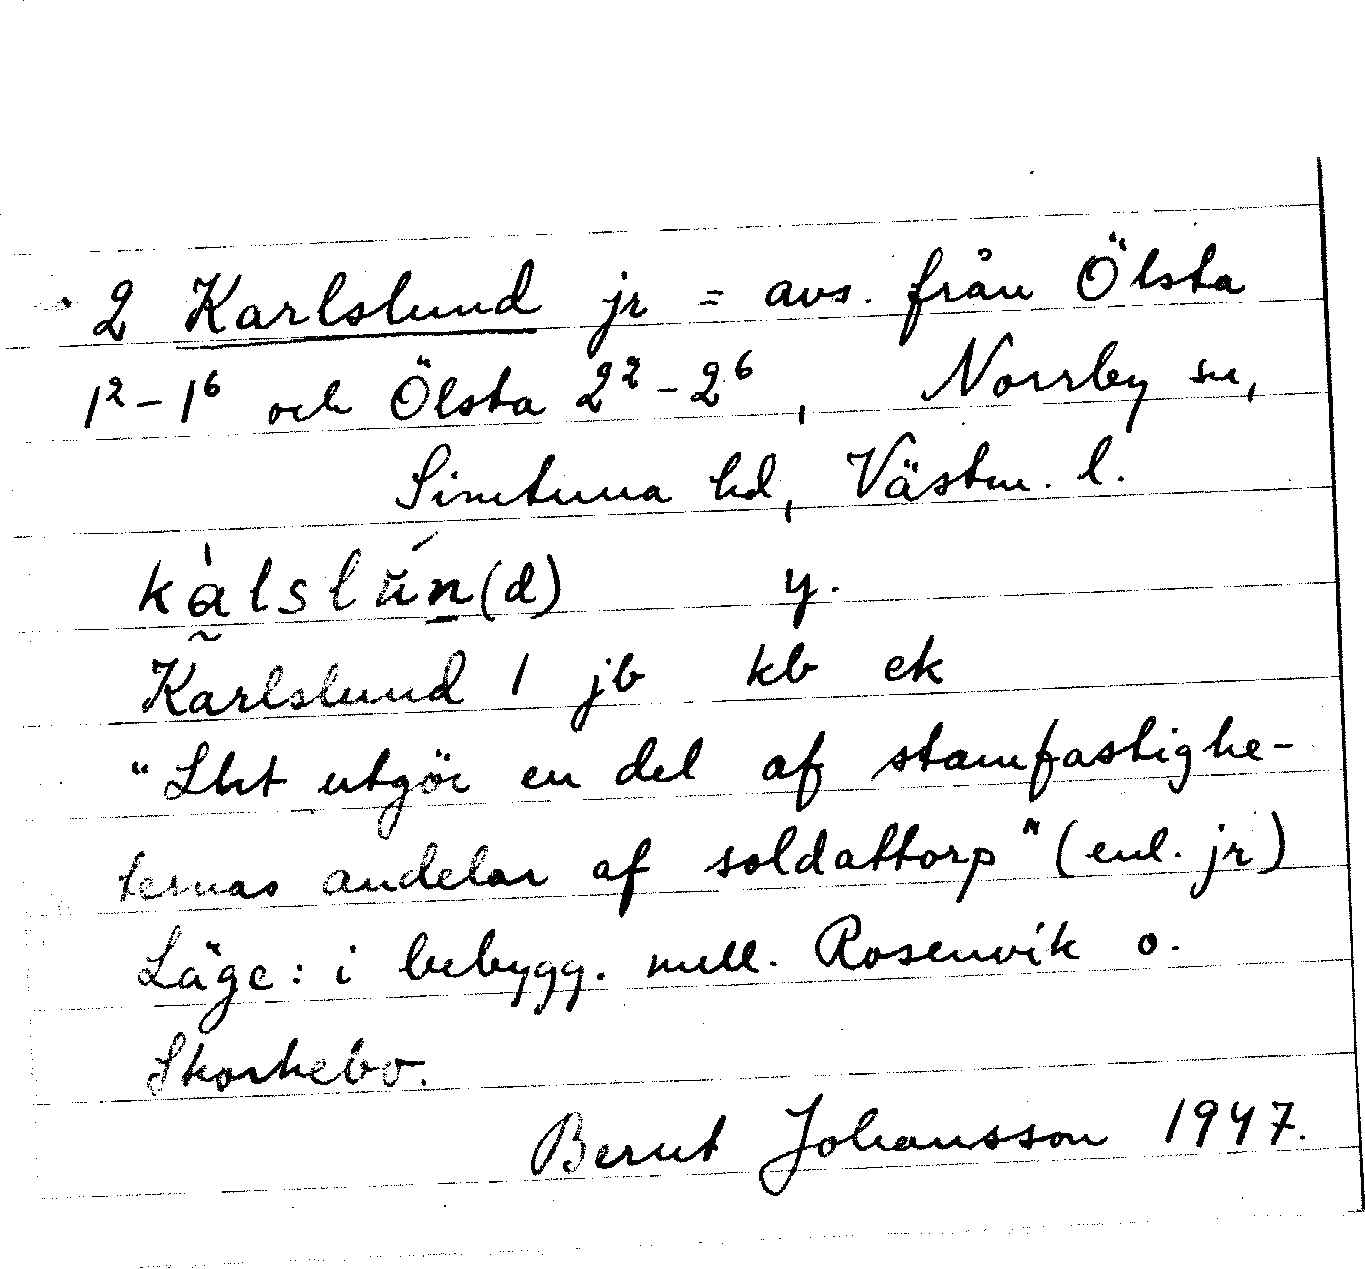 2 Karlslund jr = avs. från Ölsta
1² – 1⁶ och Ölsta 2² – 2⁶, Norrby sn,
Simtuna hd, Västm. l.
kàlslún(d) y.
Karlslund 1 jb kb ek
"Lht utgör en del af stamfastighe-
ternas andelar af soldattorp" (enl. jr)
Läge: i bebygg. mell. Rosenvik o.
Skorkebo.
Bernt Johansson 1947.